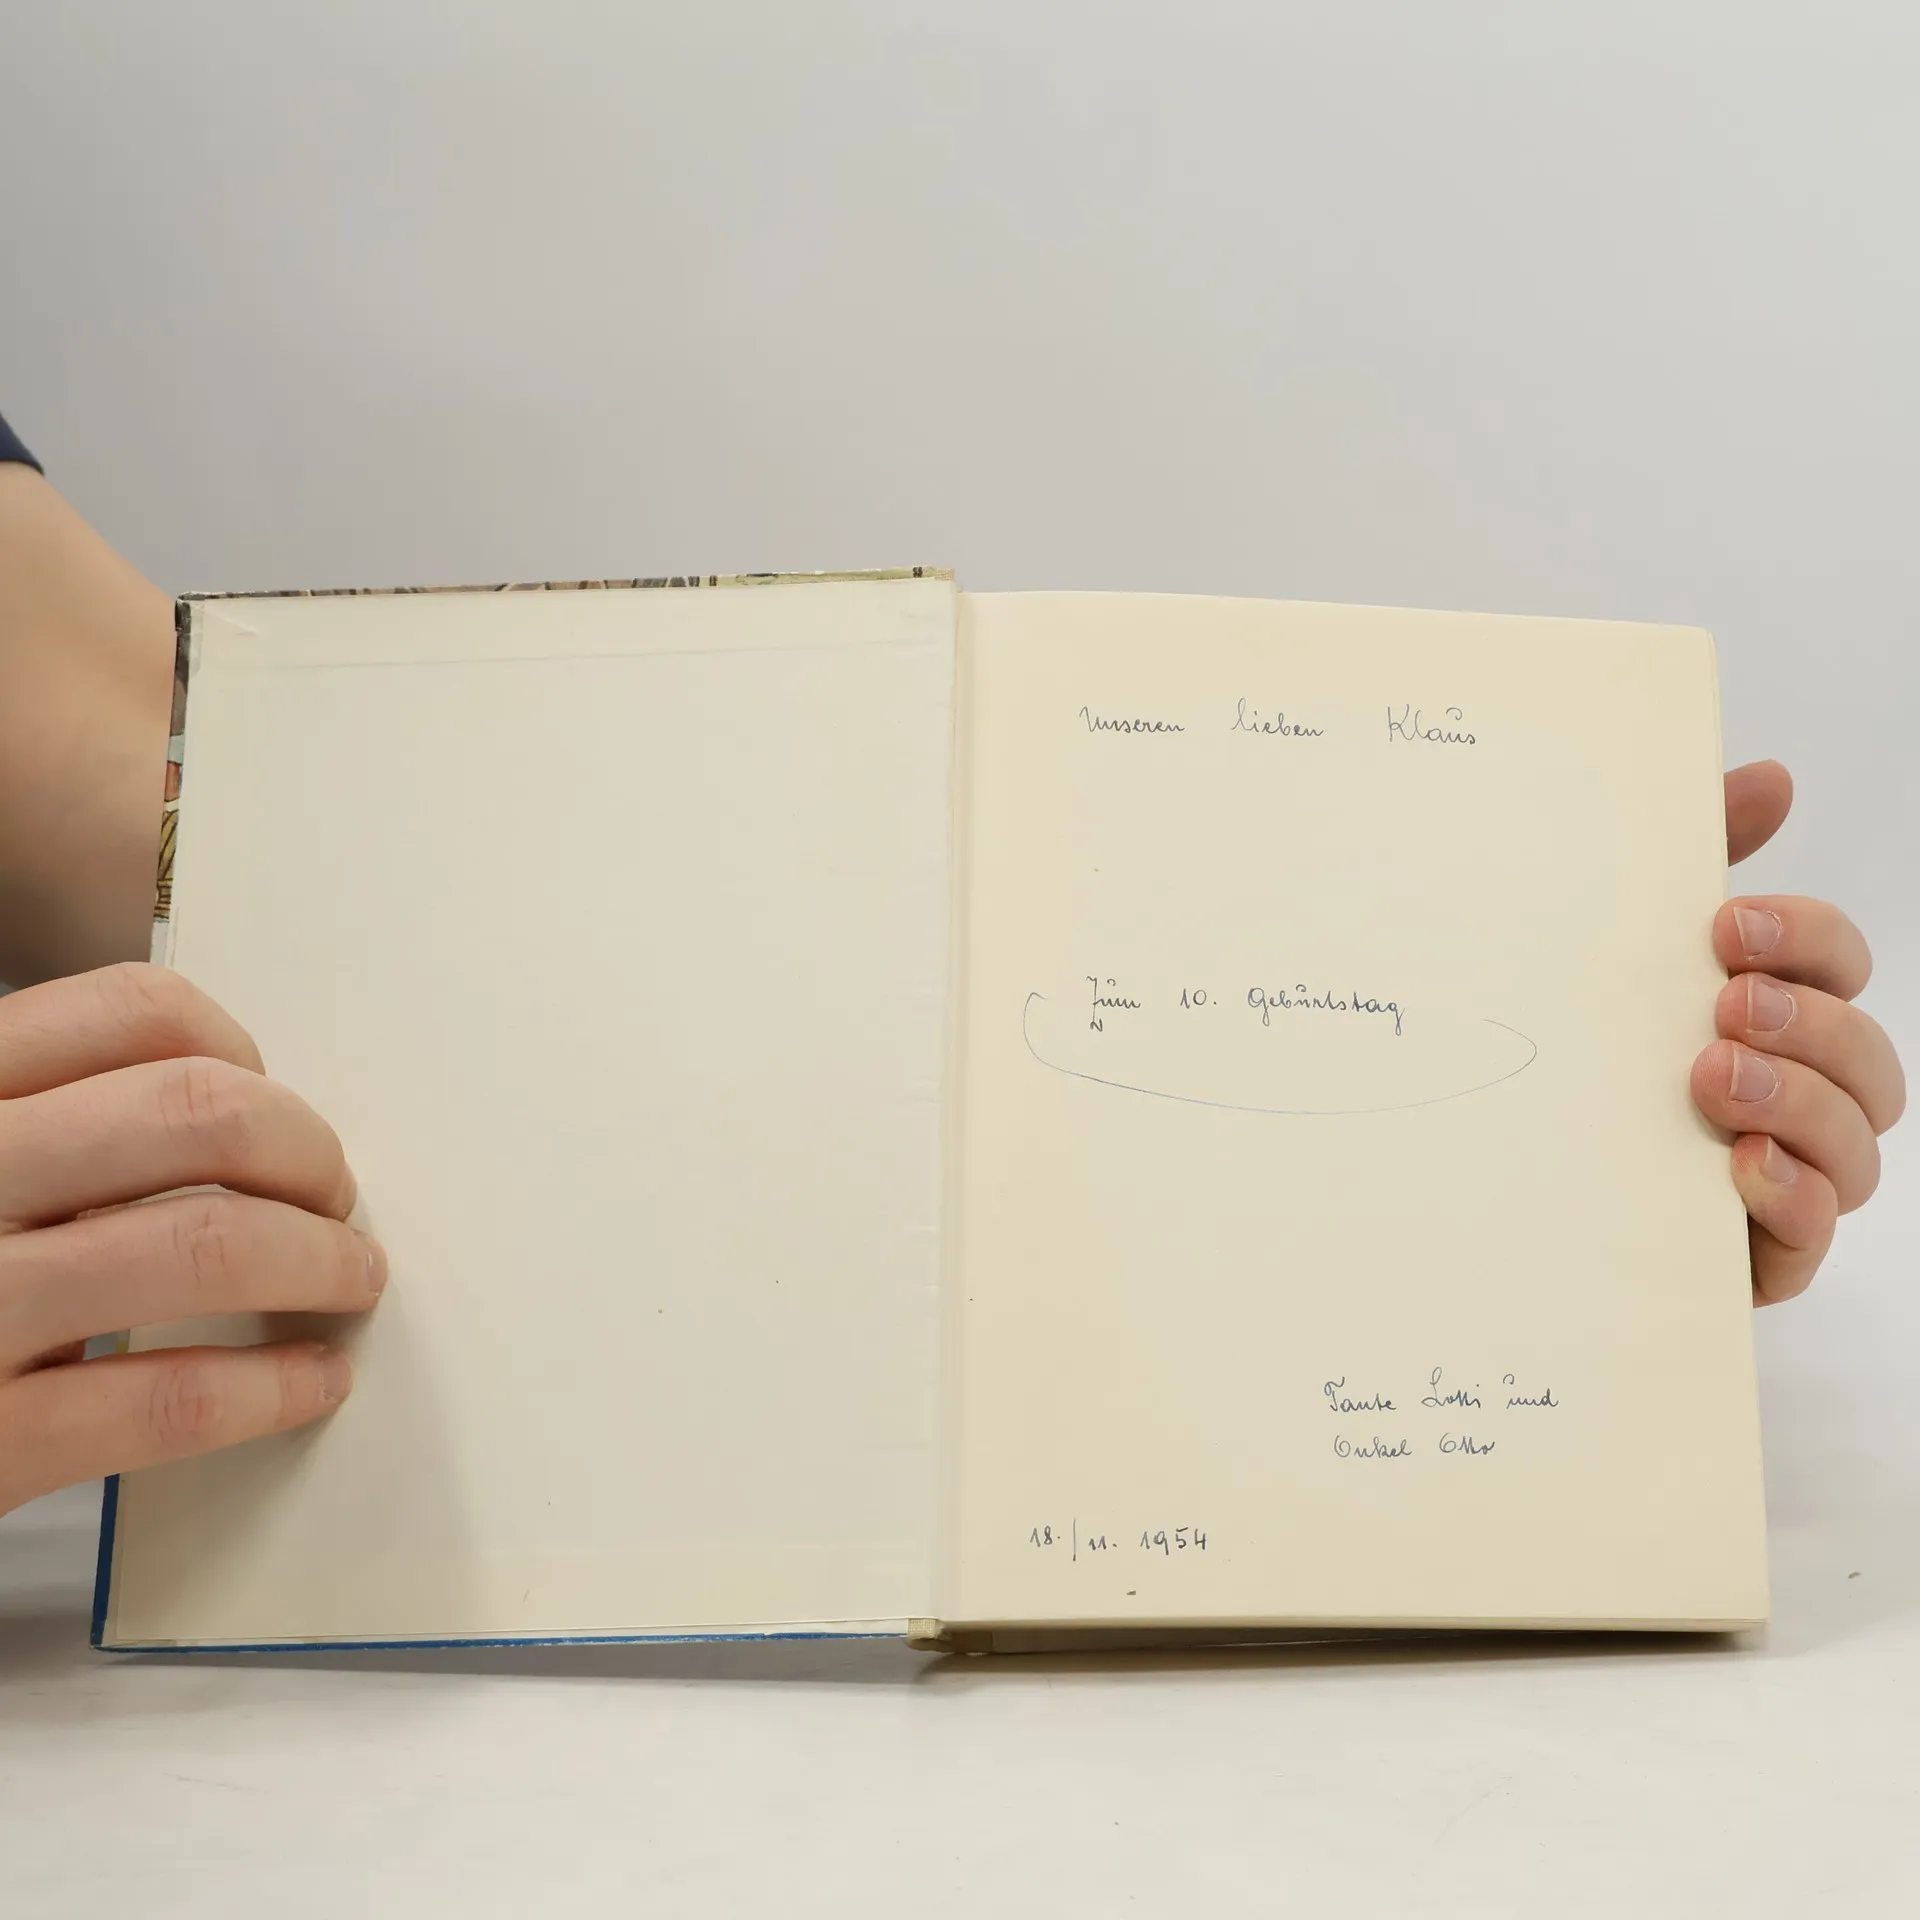 Unseren lieben Klaus
Zum 10. Geburtstag
Tante Lotti und
Onkel Otto
18./11. 1954